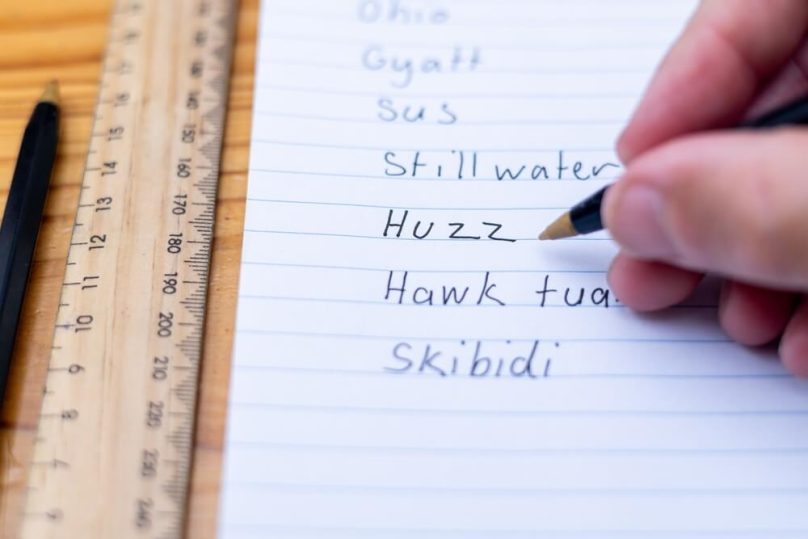 Ohio
Gyatt
Sus
Still water
Huzz
Hawk tua
Skibidi
15
14
13
12
11
10
9
8
7
150
160
170
180
190
200
210
220
230
240